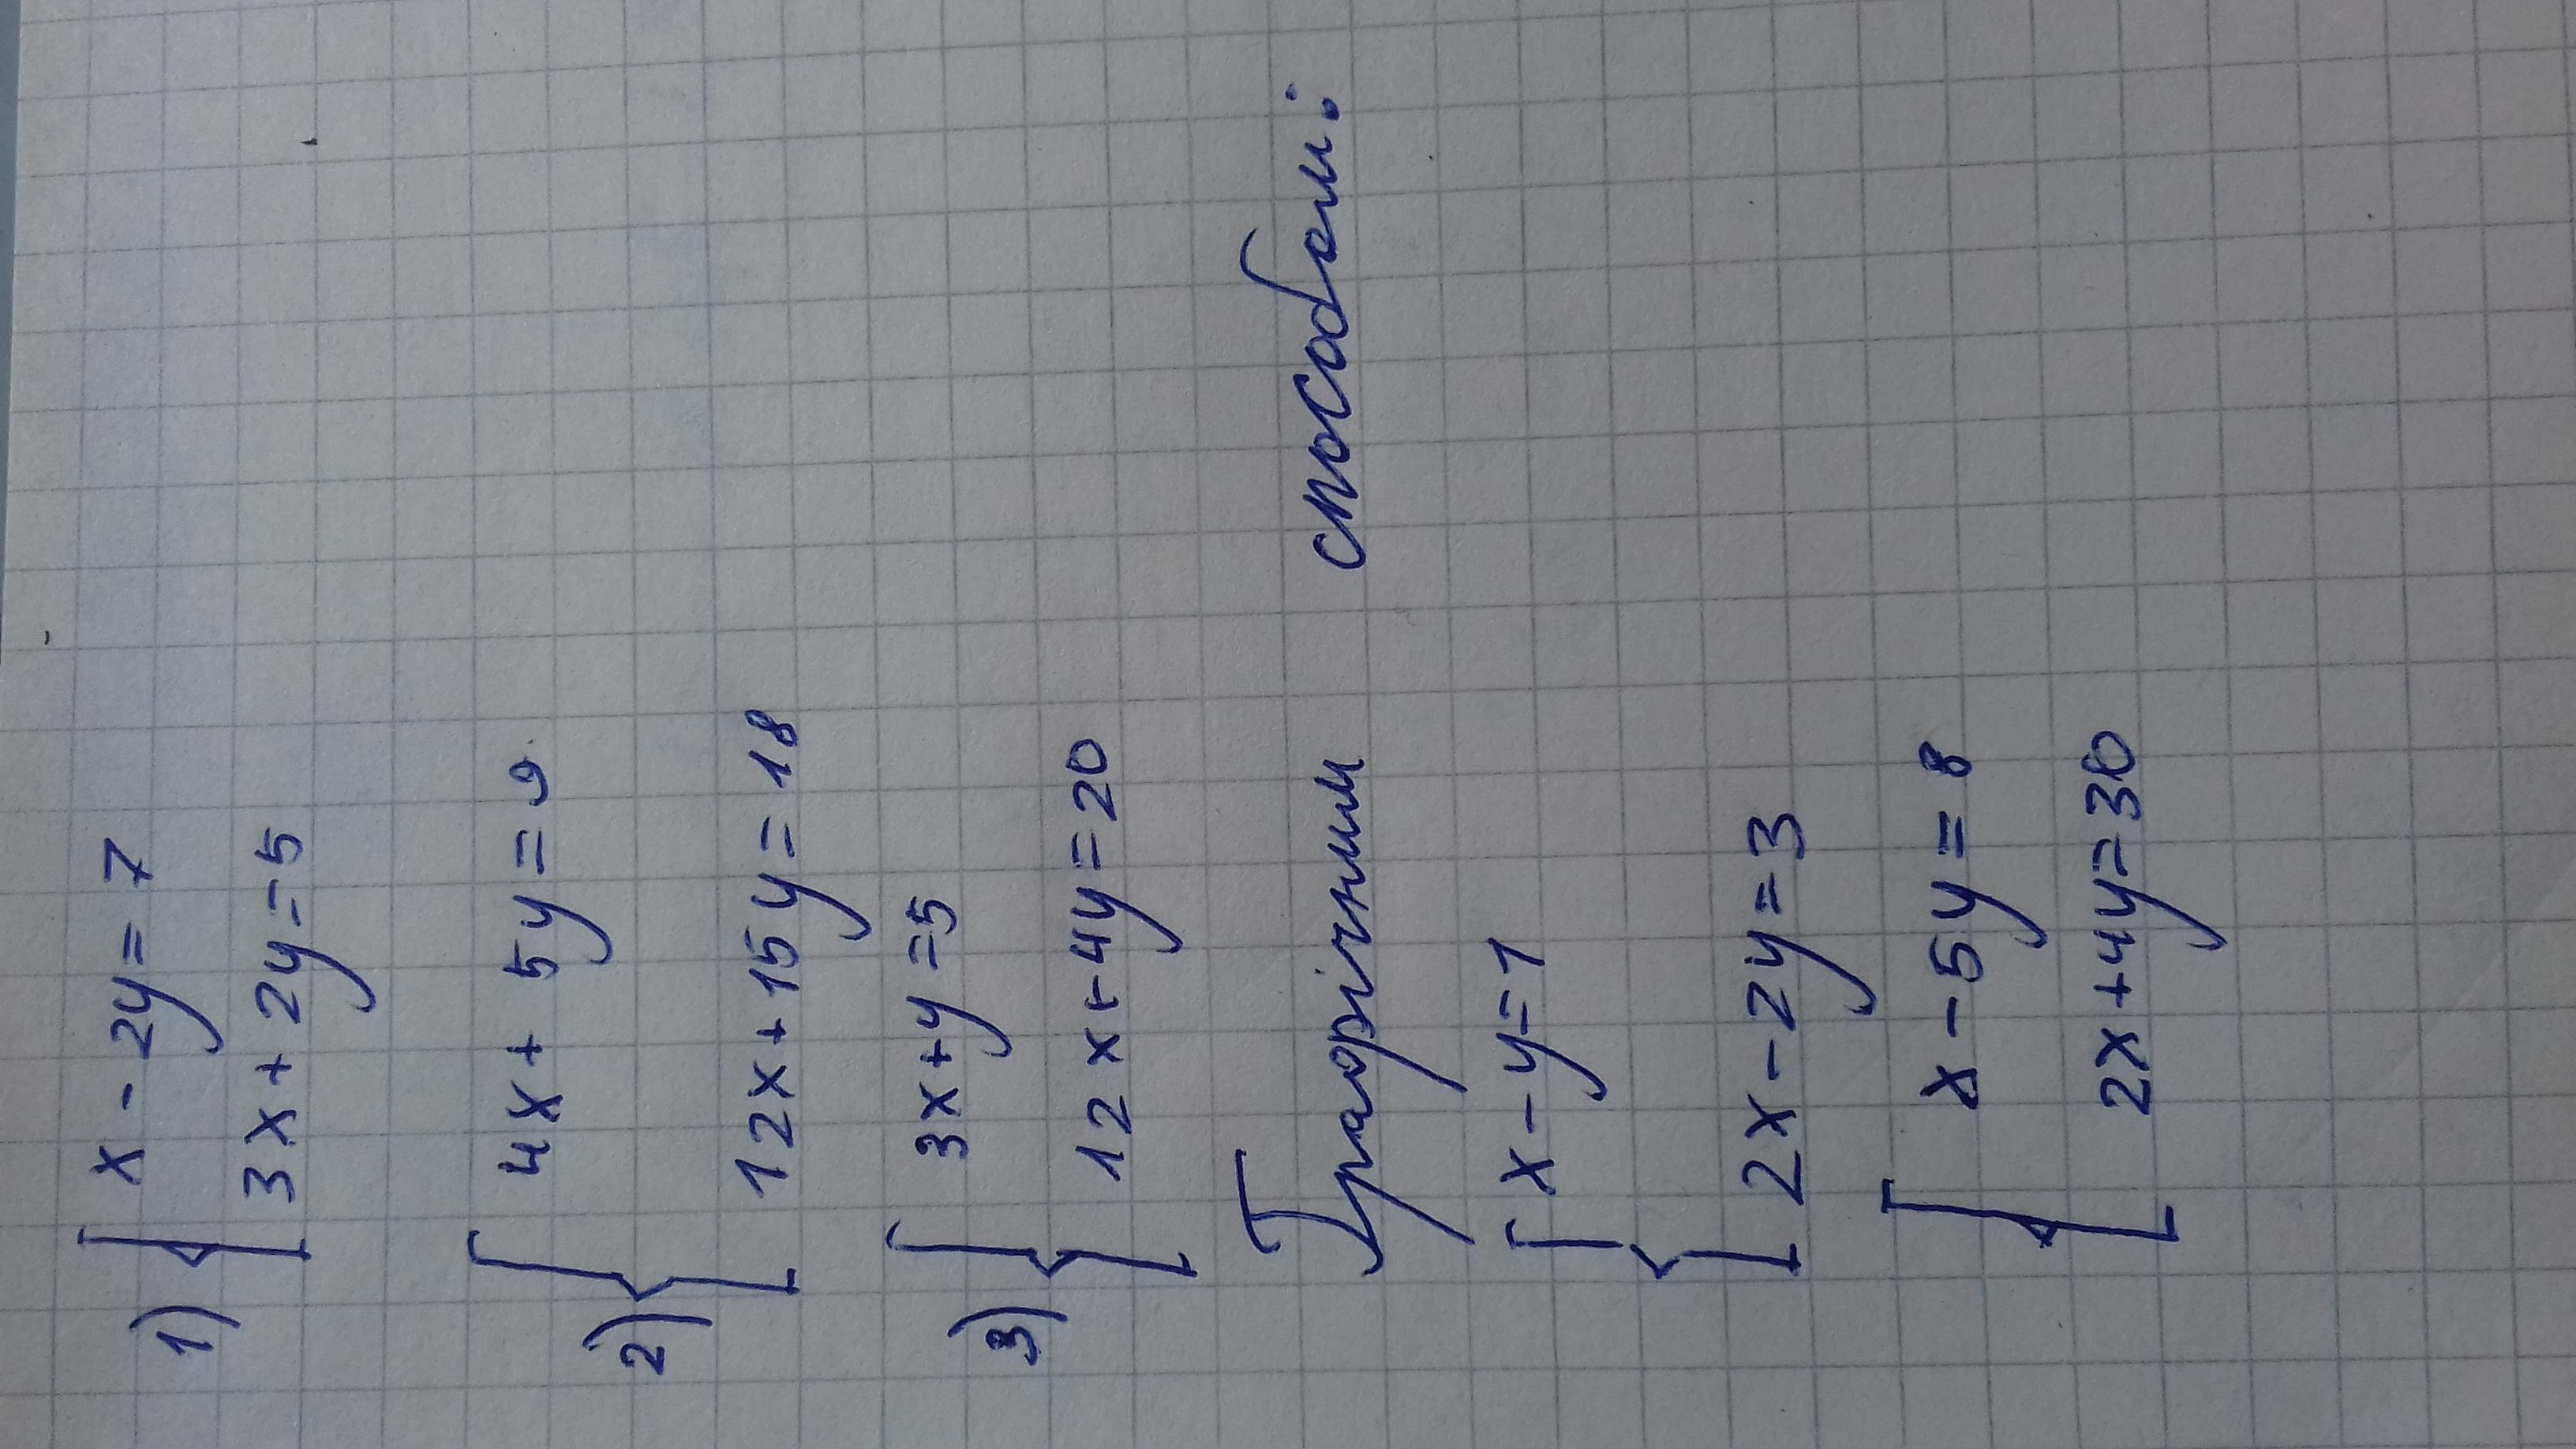 1) { x - 2y = 7
3x + 2y = 5
2) { 4x + 5y = 9
12x + 15y = 18
3) { 3x + y = 5
12x + 4y = 20
Графічним способом:
{ x - y = 1
2x - 2y = 3
{ x - 5y = 8
2x + 4y = 30